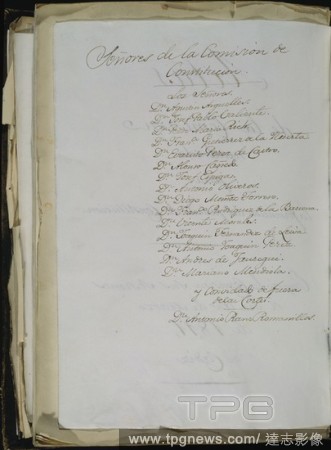 Señores de la Comision de
Constitucion.
Los Señores
Dn. Agustin Arguelles.
Dn. José Pablo Valiente.
Dn. Pedro Maria Rich.
Dn. Franco. Gutierrez de la Huerta.
Dn. Evaristo Perez de Castro.
Dn. Alonso Cañedo.
Dn. José Espiga.
Dn. Antonio Oliveros.
Dn. Diego Muñoz Torrero.
Dn. Franco. Rodriguez de la Barcena.
Dn. Vicente Morales.
Dn. Joaquin Fernandez de Leiva.
Dn. Antonio Joaquin Perez.
Dn. Andres de Jauregui.
Dn. Mariano Mendiola.
y Convidado de fuera
de las Cortes
Dn. Antonio Ranz Romanillos.
TPG
www.tpgnews.com/達志影像